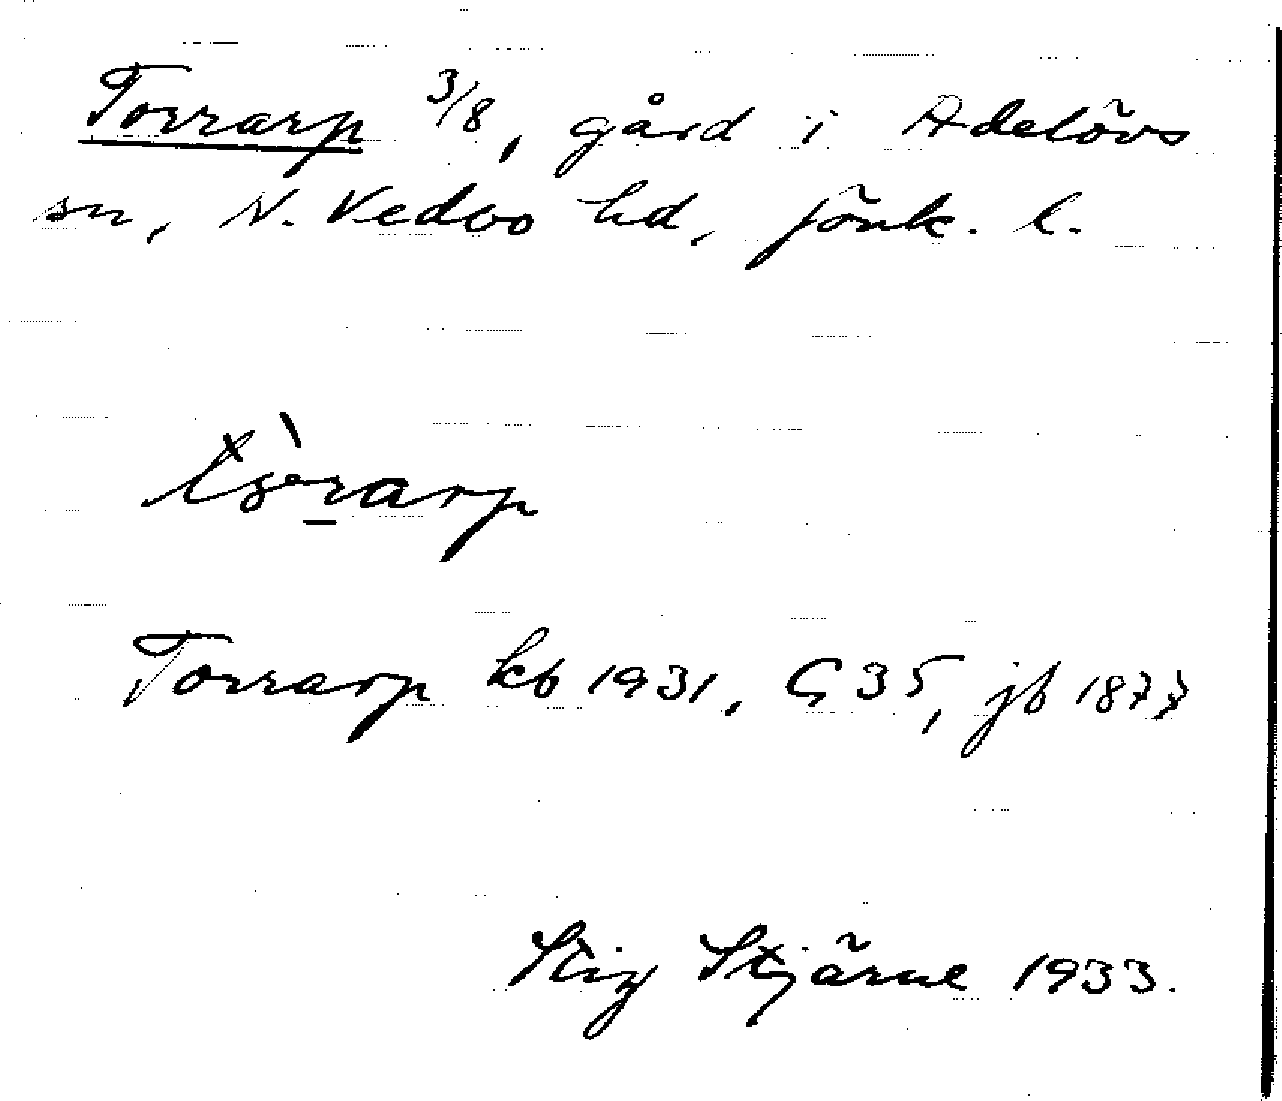 Torrarp 3/8, gård i Adelövs
sn, N. Vedbo hd, Jönk. l.
Torrarp kb 1931, G 35, jb 1877
Stig Stjärne 1933.